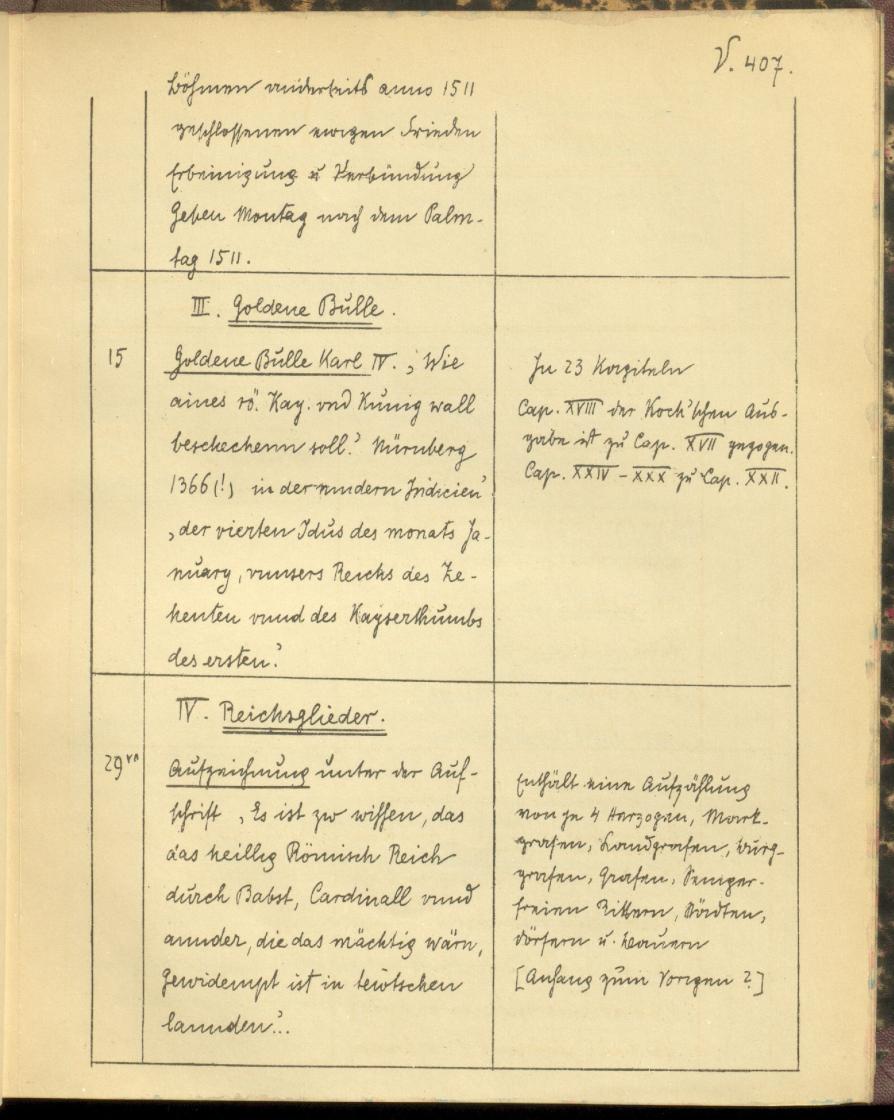 V. 407.
Böhmen anderseits anno 1511
geschlossenen ewigen Frieden
Erbeinigung u Verbündung
Geben Montag nach dem Palm-
tag 1511.
III. Goldene Bulle.
15
Goldene Bulle Karl IV. ‚Wie
aines rö. Kay. vnd Kunig wall
beschechenn soll.‘ Nürnberg
1366(!) in der anndern Indicien‘
‚der vierten Idus des monats Ja-
nuary, vnnsers Reichs des Ze-
henten vnnd des Kayserthumbs
des ersten.‘
In 23 Kapiteln
Cap. XVIII der Koch'schen Aus-
gabe ist zu Cap. XVII gezogen.
Cap. XXIV – XXX zu Cap. XXII.
IV. Reichsglieder.
29
Aufzeichnung unter der Auf-
schrift ‚Es ist zw wissen, das
das heillig Römisch Reich
durch Babst, Cardinall vnnd
annder, die das mächtig wärn,
gewidempt ist in tewtschen
lannden.‘..
Enthält eine Aufzählung
von je 4 Herzogen, Mark-
grafen, Landgrafen, Burg-
grafen, Grafen, Semper-
freien Rittern, Städten,
Dörfern u. Bauern
[Anhang zum Vorigen?]